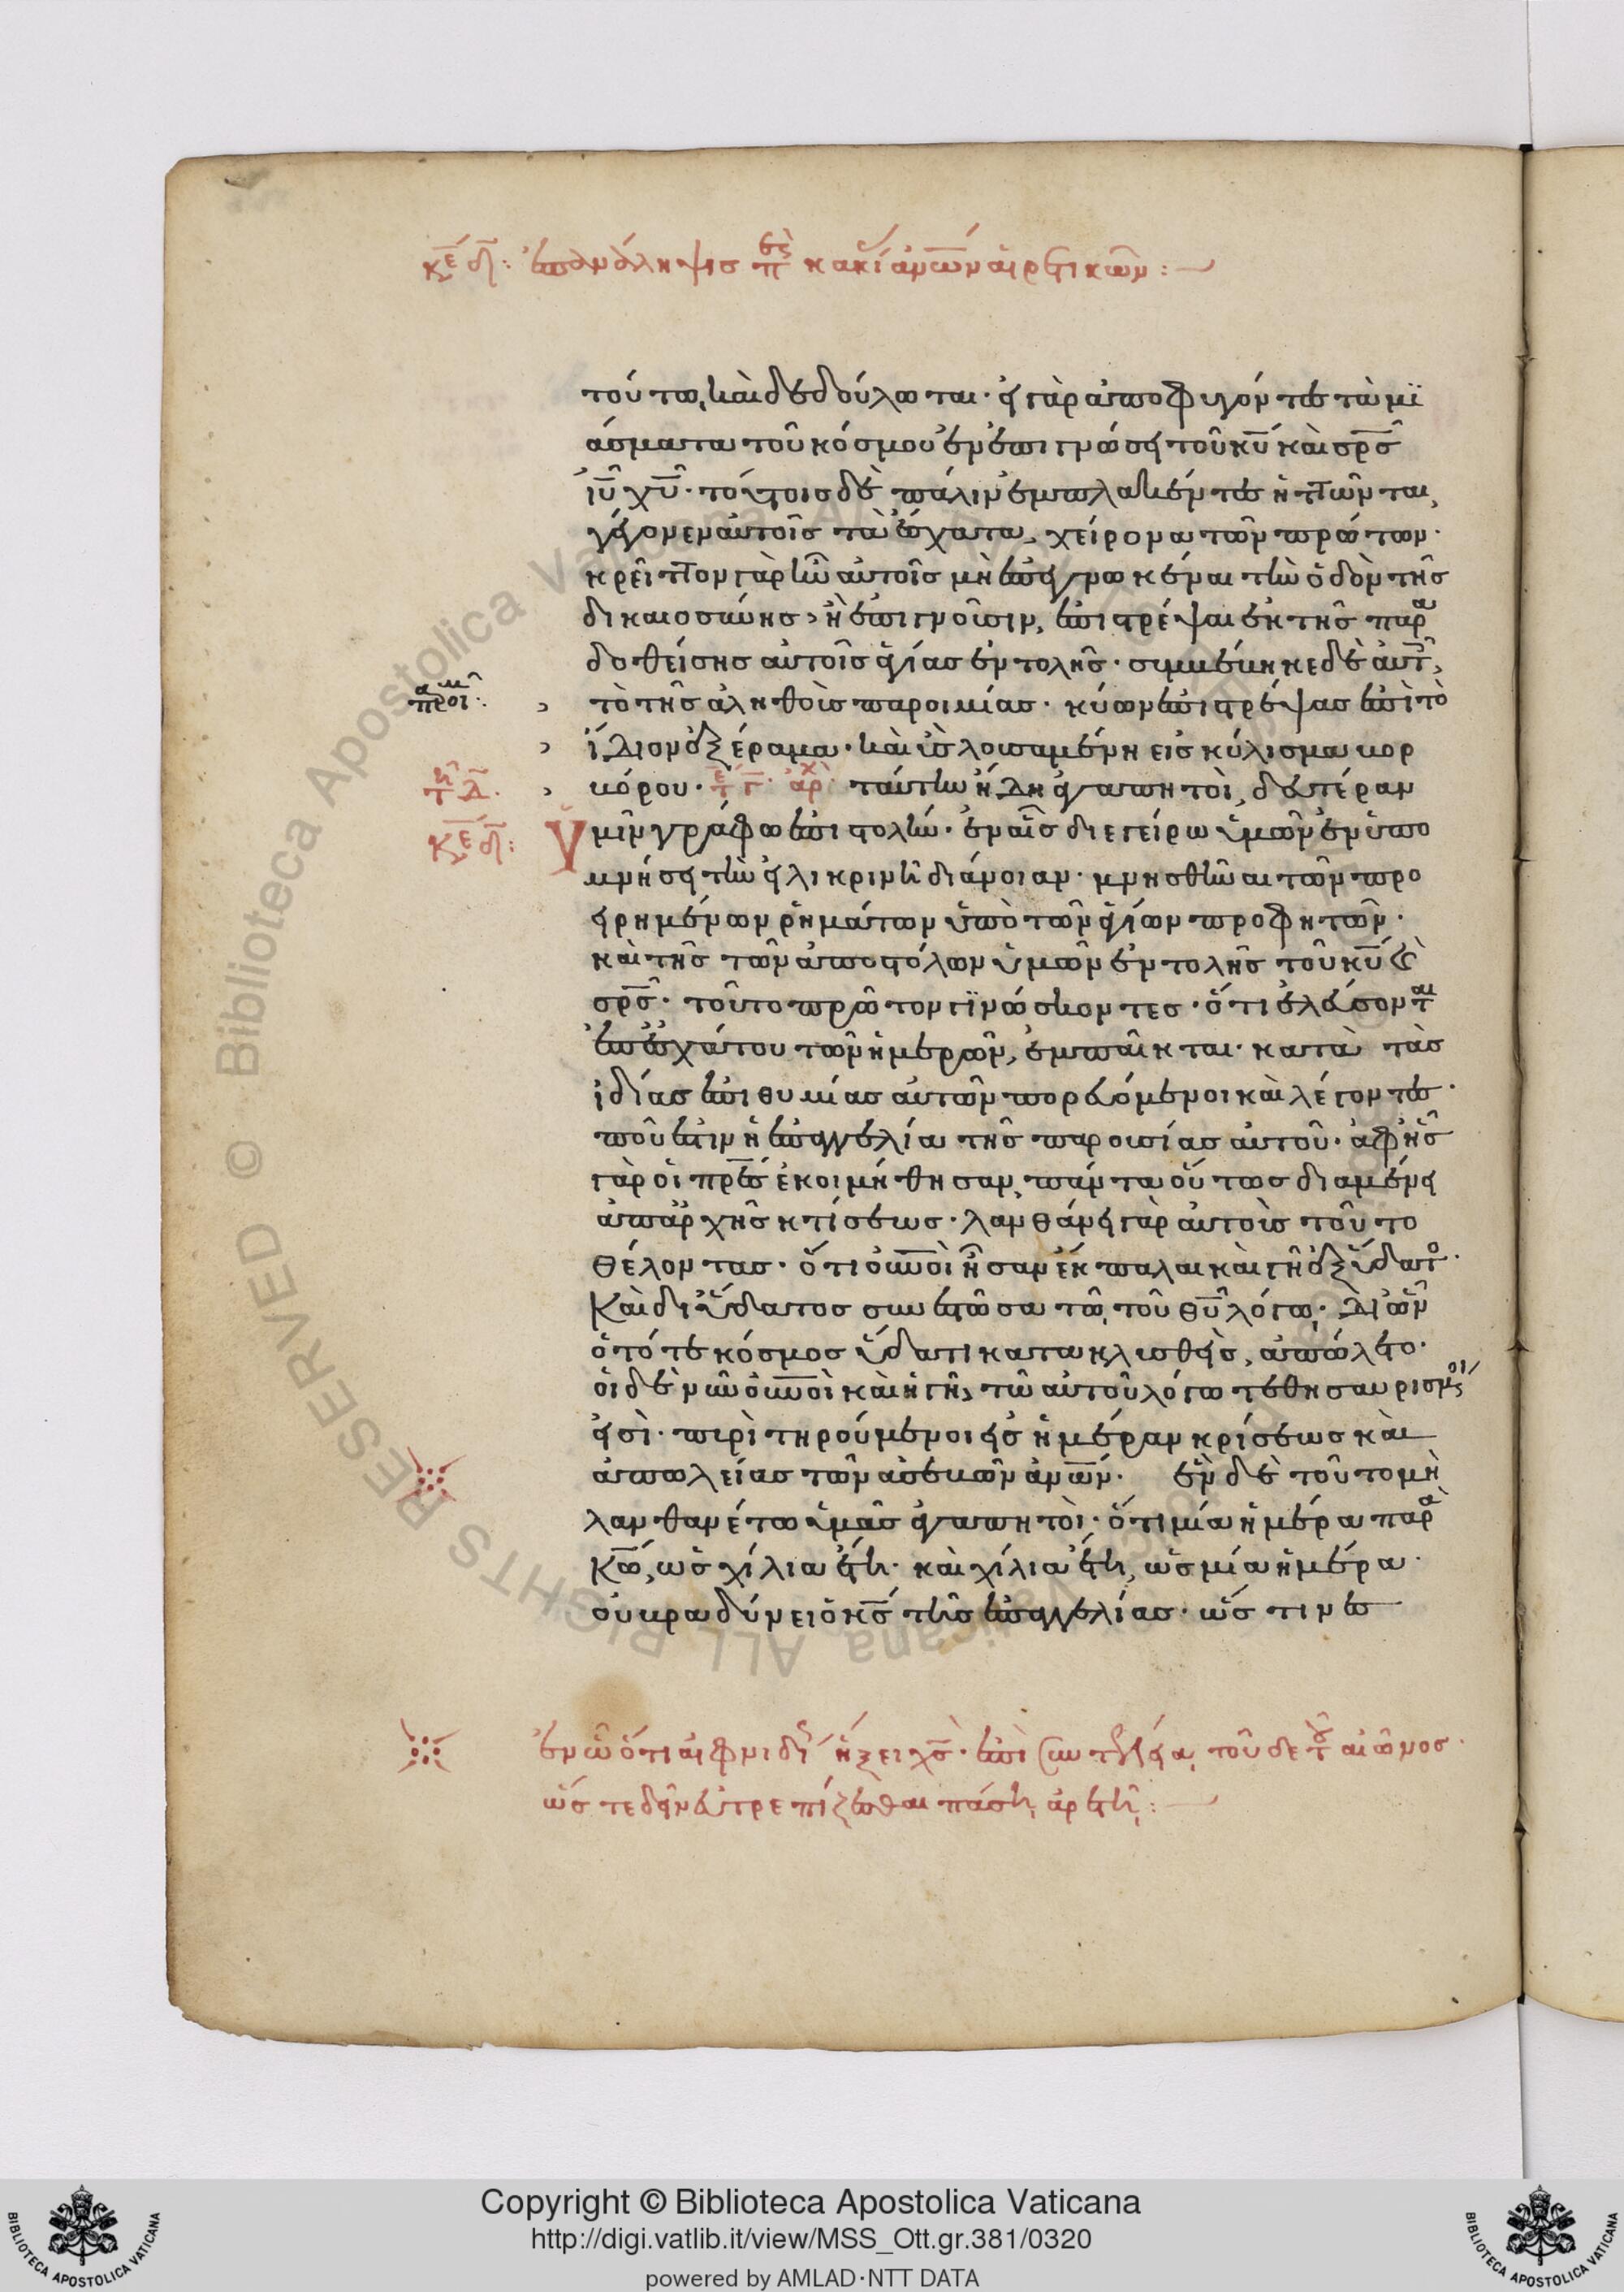 κε δ: ἐπανάληψισ περὶ κακίασ ἀνων αἱρετικῶν :
τούτω καὶ δεδούλωται· εἰ γὰρ ἀποφυγόντεσ τὰ μι
άσματα τοῦ κόσμου ἐν ἐπιγνώσει τοῦ κυ καὶ σρσ
ιυ χυ· τούτοισ δὲ πάλιν ἐμπλακέντεσ ἡττῶνται,
γέγονεν αὐτοῖσ τὰ ἔσχατα, χείρονα τῶν πρώτων·
κρεῖττον γὰρ ἦν αὐτοῖσ μὴ ἐπεγνωκέναι τὴν ὁδὸν τῆσ
δικαιοσύνησ, ἢ ἐπιγνοῦσιν, ἐπιστρέψαι ἐκ τῆσ παρα
δοθείσησ αὐτοῖσ ἁγίασ ἐντολῆσ· συμβέβηκε δὲ αὐτοῖσ,
παροιμ
τὸ τῆσ ἀληθοῦσ παροιμίασ· κύων ἐπιστρέψασ ἐπὶ τὸ
ἴδιον ἐξέραμα· καὶ ὗσ λουσαμένη εἰσ κύλισμα βορ
βόρου· τε γ· ἀρχ ταύτην ἤδη ἀγαπητοὶ, δευτέραν
κε δ:
ὑμῖν γράφω ἐπιστολήν· ἐν αἷσ διεγείρω ὑμῶν ἐν ὑπο
μνήσει τὴν εἰλικρινῆ διάνοιαν· μνησθῆναι τῶν προ
ειρημένων ῥημάτων ὑπὸ τῶν ἁγίων προφητῶν·
καὶ τῆσ τῶν ἀποστόλων ὑμῶν ἐντολῆσ τοῦ κυ καὶ
σρσ· τοῦτο πρῶτον γϊνώσκοντεσ· ὅτι ἐλεύσονται
ἐπ' ἐσχάτου τῶν ἡμερῶν, ἐμπαῖκται· κατὰ τὰσ
ἰδίασ ἐπιθυμίασ αὐτῶν πορευόμενοι καὶ λέγοντεσ·
ποῦ ἐστιν ἡ ἐπαγγελία τῆσ παρουσίασ αὐτοῦ· ἀφ' ἧσ
γὰρ οἱ πρεσ ἐκοιμήθησαν, πάντα οὕτωσ διαμένει
ἀπ' ἀρχῆσ κτίσεωσ· λανθάνει γὰρ αὐτοὺσ τοῦτο
θέλοντασ· ὅτι οὐνοὶ ἦσαν ἔκπαλαι καὶ γῆ ἐξ ὕδατοσ·
Καὶ δι' ὕδατοσ συνεστῶσα τῶ τοῦ θυ λόγω· δι' ὧν
ὁ τότε κόσμοσ ὕδατι κατακλισθεὶσ, ἀπώλετο·
οἱ δὲ νῦν οὐνοὶ καὶ ἡ γῆ, τῶ αὐτοῦ λόγω τεθησαυρισμένοι
εἰσὶ· πυρὶ τηρούμενοι εἰσ ἡμέραν κρίσεωσ καὶ
ἀπωλείασ τῶν ἀσεβῶν ἀνων· ἓν δὲ τοῦτο μὴ
λανθανέτω ὑμᾶσ ἀγαπητοὶ· ὅτι μία ἡμέρα παρὰ
Κω, ὡσ χίλια ἔτη· καὶ χίλια ἔτη, ὡσ μία ἡμέρα·
οὐ βραδύνει ὁ κσ τῆσ ἐπαγγελίασ· ὥσ τινεσ
ἐν ὧ ὅτι αἰφνιδίωσ ἥξει χσ· ἐπὶ συντελεία τοῦδε τοῦ αἰῶνοσ·
ὥστε δεῖν εὐτρεπίζεσθαι πάση ἀρετῆ:
Copyright © Biblioteca Apostolica Vaticana
http://digi.vatlib.it/view/MSS_Ott.gr.381/0320
powered by AMLAD·NTT DATA
BIBLIOTECA APOSTOLICA VATICANA
BIBLIOTECA APOSTOLICA VATICANA